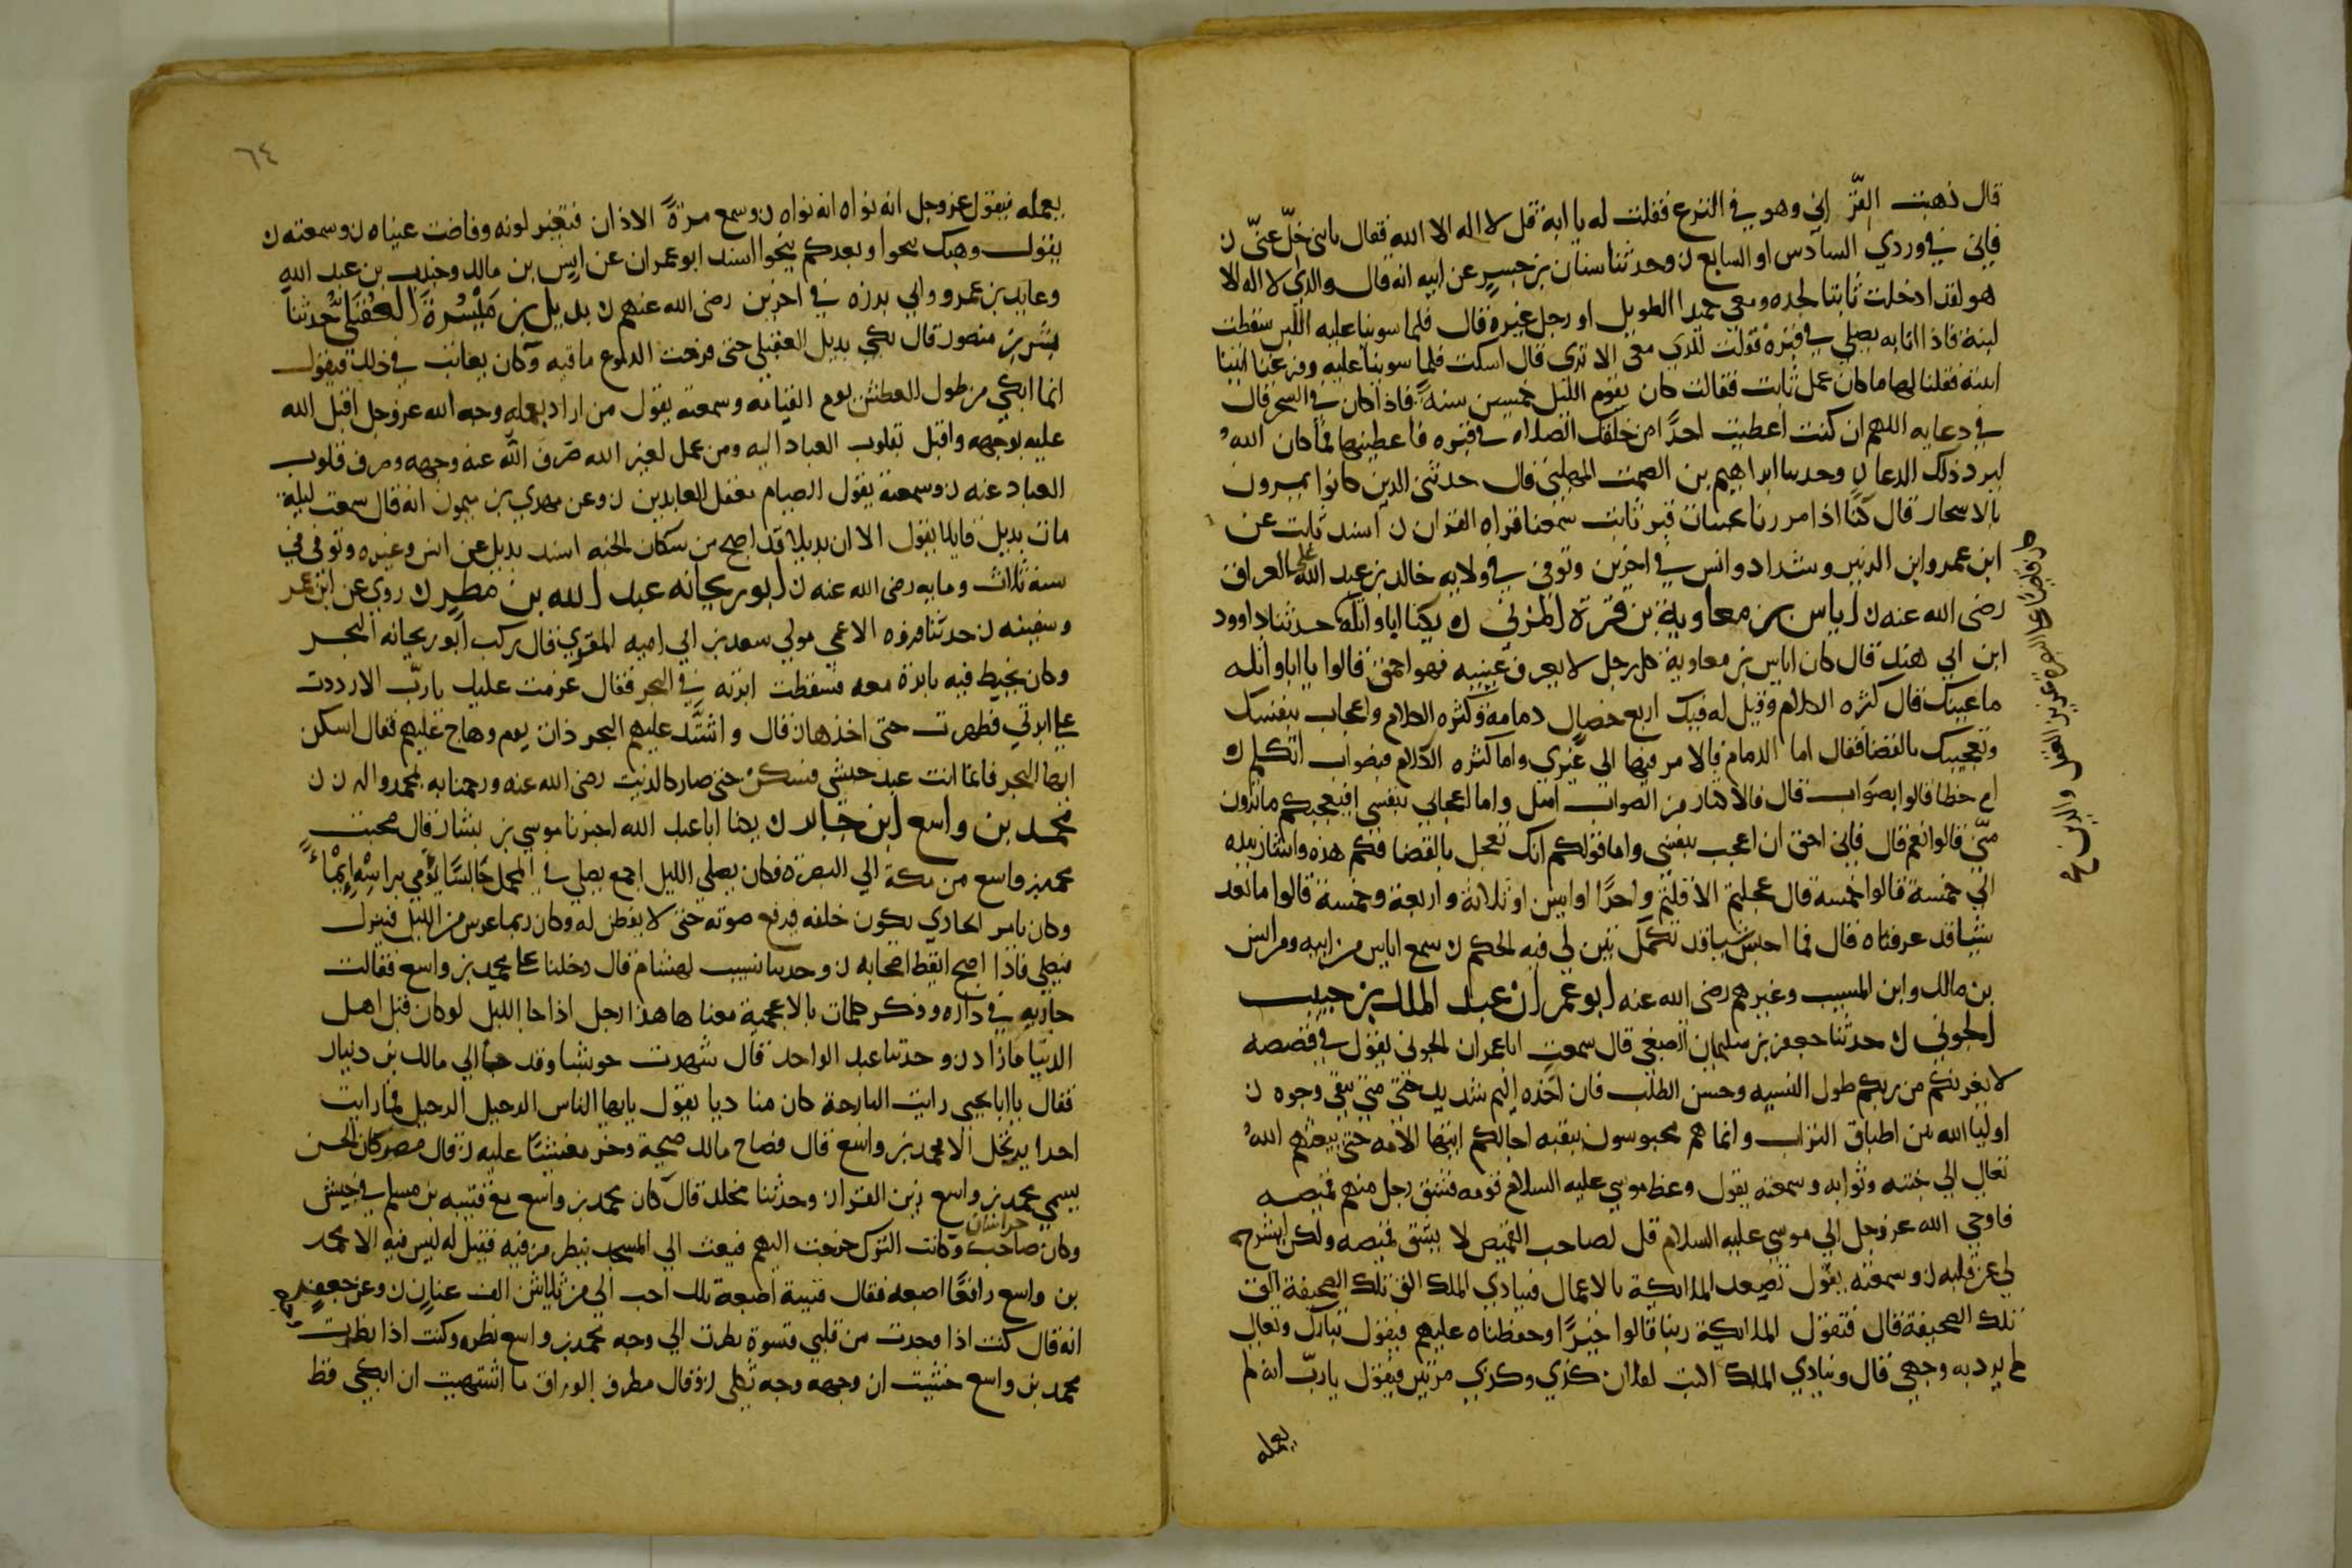 قال ذهبت القّن ابي وهو في النزع فقلت له يا ابة قل لا اله الا الله فقال يا بني خلّ عنّي ن
فاني في وردي السادس او السابع ن وحدثنا سنان بن جسر عن ابيه انه قال والذي لا اله الا
هو لقد ادخلت ثابتا لحده ومعي حميدا الطويل او رجل غيره قال فلما سوينا عليه اللبن سقطت
لبنة فاذا انا به يصلي في قبره فقولت للذي معي الا تري قال اسكت فلما سوينا عليه وفرغنا اتينا
ابنته فقلنا لها ما كان عمل ثابت فقالت كان يقوم الليل خمسين سنة فاذا كان في السحر قال
في دعايه اللهم ان كنت اعطيت احدا من خلقك الصلاه في قبره فاعطينها فما كان الله
ليرد ذلك الدعا ن وحدثنا ابراهيم بن الصمت المهلبي قال حدثني الذين كانوا يمرون
بالاسحار قال كنّا اذا مررنا بجنبات قبر ثابت سمعنا قراه القران ن اسند ثابت عن
ابن عمر وابن الزبير وشداد وانس في اخرين وتوفي في ولايه خالد بن عبد الله على العراق
رضي الله عنه ن اياس بن معاوية بن قرة المزني ن يكنا ابا واثلة حدثنا داوود
ابن ابي هند قال كان اياس بن معاوية كل رجل لا يعرف عيبه فهو احمق قالوا يا ابا واثله
ما عيبك قال كثره الكلام وقيل له فيك اربع خصال دمامة وكثره الكلام واعجاب بنفسك
وتعجيبك بالقضا فقال اما الدمام فالامر فيها الي غيري واما كثره الكلام فبصواب اتكلم ن
ام خطا قالوا بصواب قال فالاكثار من الصواب امثل واما اعجابي بنفسي افيعجبكم ما ترون
منّي قالوا نعم قال فاني احق ان اعجب بنفسي واما قولكم انك تعجل بالقضا فكم هذه واشار بيده
الي خمسة قالوا خمسه قال عجلتم الا قلتم واحدًا او اثنين او ثلاثة واربعة وخمسة قالوا ما نعد
شيا قد عرفناه قال فما احبس شيا قد تكمل تبين لي فيه الحكم ن سمع اياس من ابيه ومن انس
بن مالك وابن المسيب وغيرهم رضي الله عنه ابو عمران عبد الملك بن حبيب
الجوني ن حدثنا جعفر بن سليمان الضبعي قال سمعت ابا عمران الجوني يقول في قصصه
لا يغرنكم من ربكم طول النسيه وحسن الطلب فان اخذه اليم شديد حتي متي تبقي وجوه ن
اوليا الله بين اطباق التراب وانما هم محبوسون ببقيه اجالكم ايتها الامه حتي يبعثهم الله
تعالي الي جنته وثوابه وسمعته يقول وعظ موسي عليه السلام قومه فشق رجل منهم قميصه
فاوحي الله عز وجل الي موسي عليه السلام قل لصاحب القميص لا يشق قميصه ولكن ليشرح
لي عن قلبه ن وسمعته يقول تصعد الملايكة بالاعمال فينادي الملك الق تلك الصحيفة الق
تلك الصحيفة قال فتقول الملايكة ربنا قالوا خيرًا وحفظناه عليهم فيقول تبارك وتعالي
لم يرد به وجهي قال وينادي الملك اكتب لفلان كذي وكذي مرتين فيقول يا ربّ انه لم
يعمله
٦٤
يعمله فيقول عز وجل انه نواه انه نواه ن وسمع مرةً الاذان فتغير لونه وفاضت عيناه ن وسمعته ن
يقول وهبك تنجوا وبعدكم ينجوا اسند ابو عمران عن انس بن مالك وجندب بن عبد الله
وعايد بن عمرو وابي برزه في اخرين رضي الله عنهم ن بديل بن مَيْسَرَة العُقَيلي حدثنا
بشر بن منصور قال بكي بديل العقيلي حتي قرحت الدموع ماقيه وكان يعاتب في ذلك فيقول
انما ابكي من طول العطش يوم القيامه وسمعته يقول من اراد بعمله وجه الله عز وجل اقبل الله
عليه بوجهه واقبل بقلوب العباد اليه ومن عمل لغير الله صرف الله عنه وجهه وصرف قلوب
العباد عنه ن وسمعته يقول الصيام معقل العابدين ن وعن مهدي بن ميمون انه قال سمعت ليلة
مات بديل قايلا يقول الا ان بديلا قد اصبح من سكان الجنه اسند بديل عن انس وغيره وتوفي في
سنه ثلاث ومايه رضي الله عنه ن ابو ريحانه عبد الله بن مطر ن روي عن ابن عمر
وسفينه ن حدثنا فروه الاعمي مولي سعد بن ابي اميه المقري قال ركب ابو ريحانه البحر
وكان يخيط فيه بابرة معه فسقطت ابرته في البحر فقال عزمت عليك يا ربّ الا رددت
علي ابرتي فظهرت حتي اخذها ن قال واشتّد عليهم البحر ذات يوم وهاج عليهم فقال اسكن
ايها البحر فانما انت عبد حبشي فسكن حتي صار كالزيت رضي الله عنه ورحمنا به بمحمد واله ن ن
محمد بن واسع ابن جابر ن يكنا ابا عبد الله اخبرنا موسي بن بشار قال صحبت
محمد بن واسع من مكة الي البصرة فكان يصلي الليل اجمع يصلي في المحمل جالسًا يؤمي براسه ايماءً
وكان يامر الحادي يكون خلفه فيرفع صوته حتي لا يفطن له وكان ربما عرس من الليل فينزل
فيصلي فاذا اصبح ايقظ اصحابه ن وحدثنا شبيب لهشام قال دخلنا علي محمد بن واسع فقالت
جاريه في داره وذكر كلمات بالاعجمية معناها هذا رجل اذا جا الليل لو كان قتل اهل
الدنيا ما زاد ن وحدثنا عبد الواحد قال شهدت حوشبا وقد جا الي مالك بن دينار
فقال يا ابا يحيي رايت البارحة كان مناديا يقول يايها الناس الرحيل الرحيل فما رايت
احدا يرتحل الا محمد بن واسع قال فصاح مالك صيحة وخر مغشيّا عليه ن قال مضر كان الحسن
يسمي محمد بن واسع زين القران وحدثنا مخلد قال كان محمد بن واسع مع قتيبه بن مسلم في جيش
وكان صاحب خراسان وكانت الترك خرجت اليهم فبعث الي المسجد ينظر من فيه فقيل له ليس فيه الا محمد
بن واسع رافعًا اصبعه فقال قتيبة اصبعه تلك احب الي من ثلاثين الف عنان ن وعن جعفر
انه قال كنت اذا وجدت من قلبي قسوة نظرت الي وجه محمد بن واسع نظره وكنت اذا نظرت
محمد بن واسع حسبت ان وجهه وجه ثكلي ن وقال مطرف الوراق ما اشتهيت ان ابكي قط